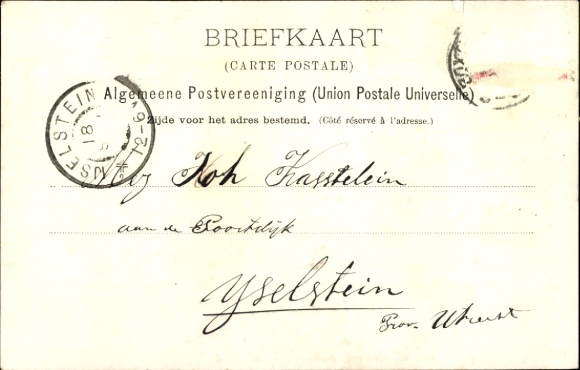 BRIEFKAART
(CARTE POSTALE)
Algemeene Postvereeniging (Union Postale Universelle)
Zijde voor het adres bestemd. (Côté réservé à l'adresse.)
IJSELSTEIN
12-6
18
Mej Joh Kasstelein
aan de Poortdijk
Yselstein
Prov. Utrecht